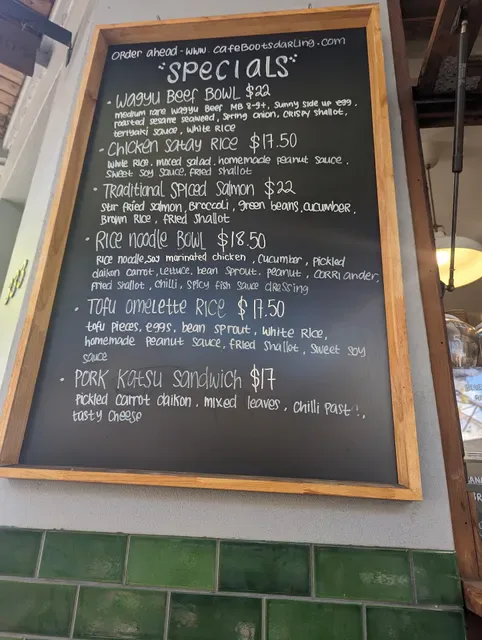 order ahead - www. cafebootsdarling.com
"SPECIALS"
• Wagyu Beef Bowl $22
medium rare wagyu Beef MB 8-9+, sunny side up egg,
roasted sesame seaweed, spring onion, crispy shallot,
teriyaki sauce, white rice
• Chicken Satay Rice $17.50
White Rice, mixed salad, homemade peanut sauce,
sweet soy sauce, fried shallot
• Traditional spiced Salmon $22
Stir fried salmon, Broccoli, green beans, cucumber,
Brown Rice, fried shallot
• Rice noodle Bowl $18.50
Rice noodle, soy marinated chicken, cucumber, pickled
daikon carrot, lettuce, bean sprout, peanut, corriander,
fried shallot, chilli, spicy fish sauce dressing
• Tofu omelette Rice $17.50
tofu pieces, eggs, bean sprout, white Rice,
homemade peanut sauce, fried shallot, sweet soy
sauce
• Pork Katsu Sandwich $17
pickled carrot daikon, mixed leaves, chilli past
tasty cheese